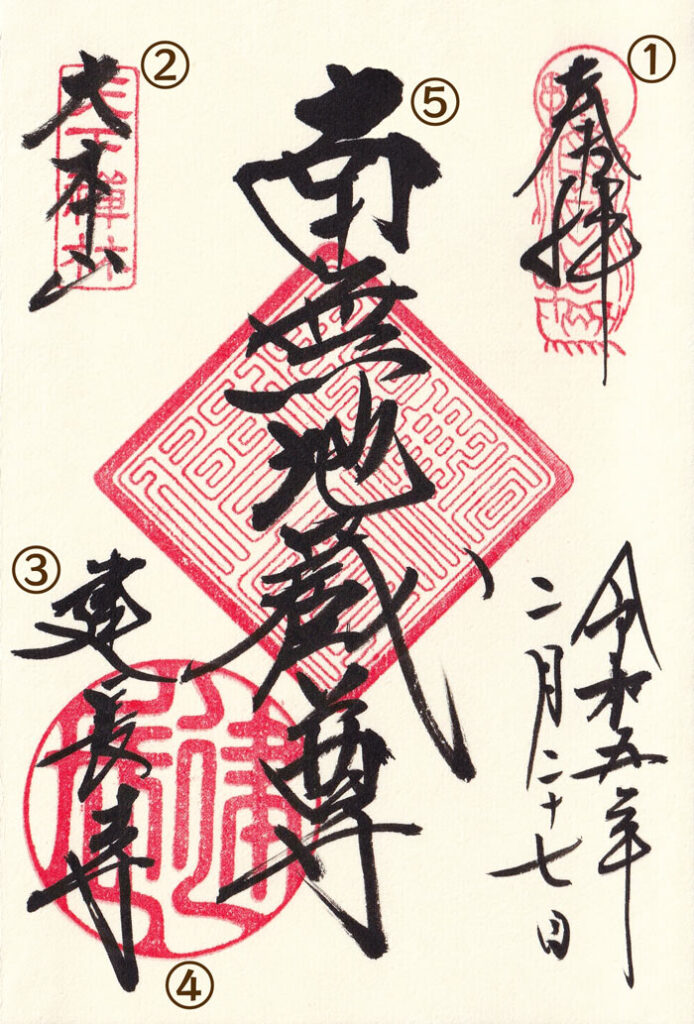 ①
奉拝
令和五年
二月二十七日
⑤
南無地蔵尊
②
大本山
天下禅林
③
建長寺
④